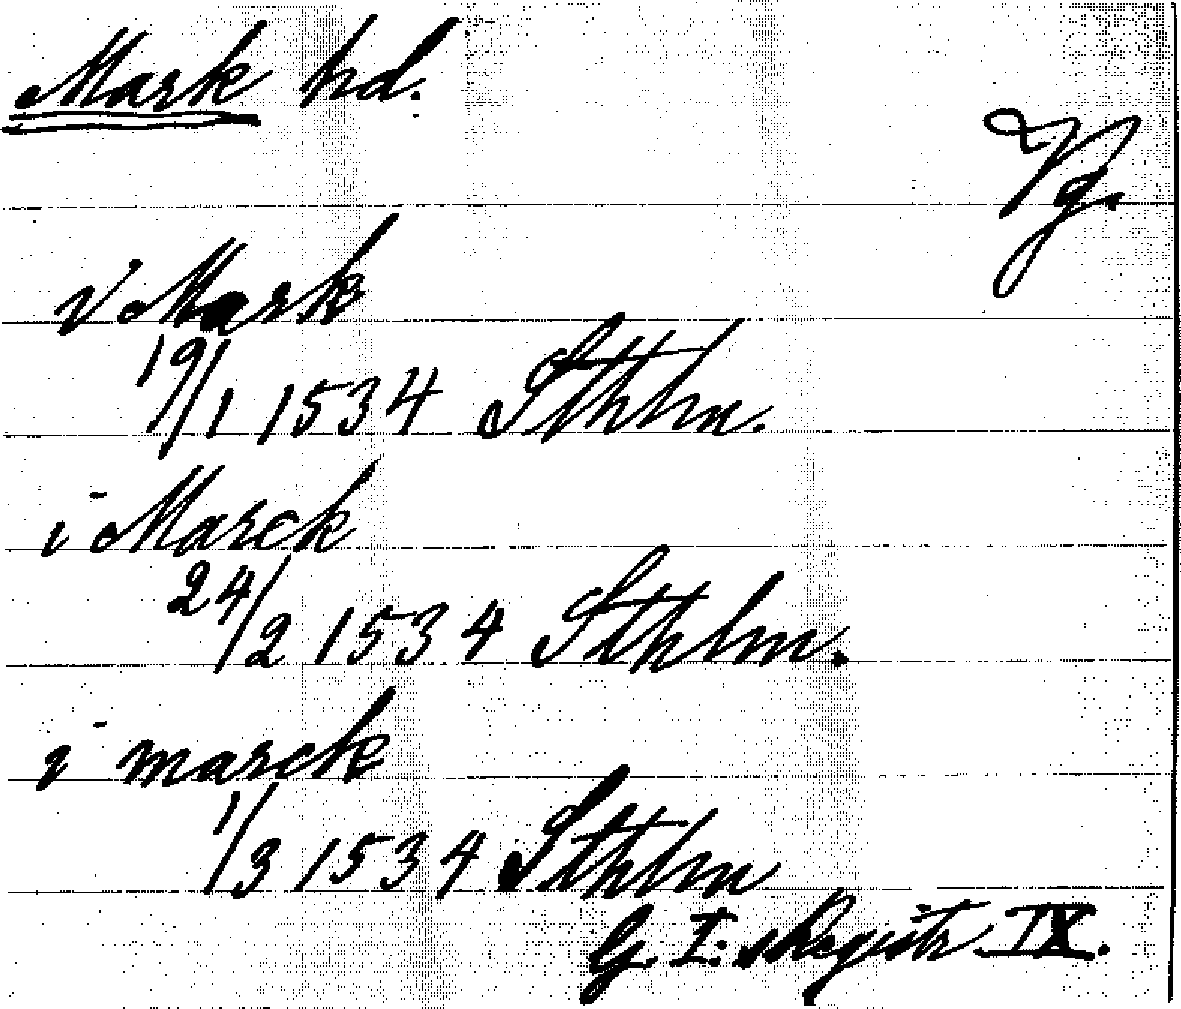 Mark hd.
Vg.
i Mark
19/1 1534 Sthlm.
i Marck
24/2 1534 Sthlm.
i marck
1/3 1534 Sthlm
G. I: s Registr IX.